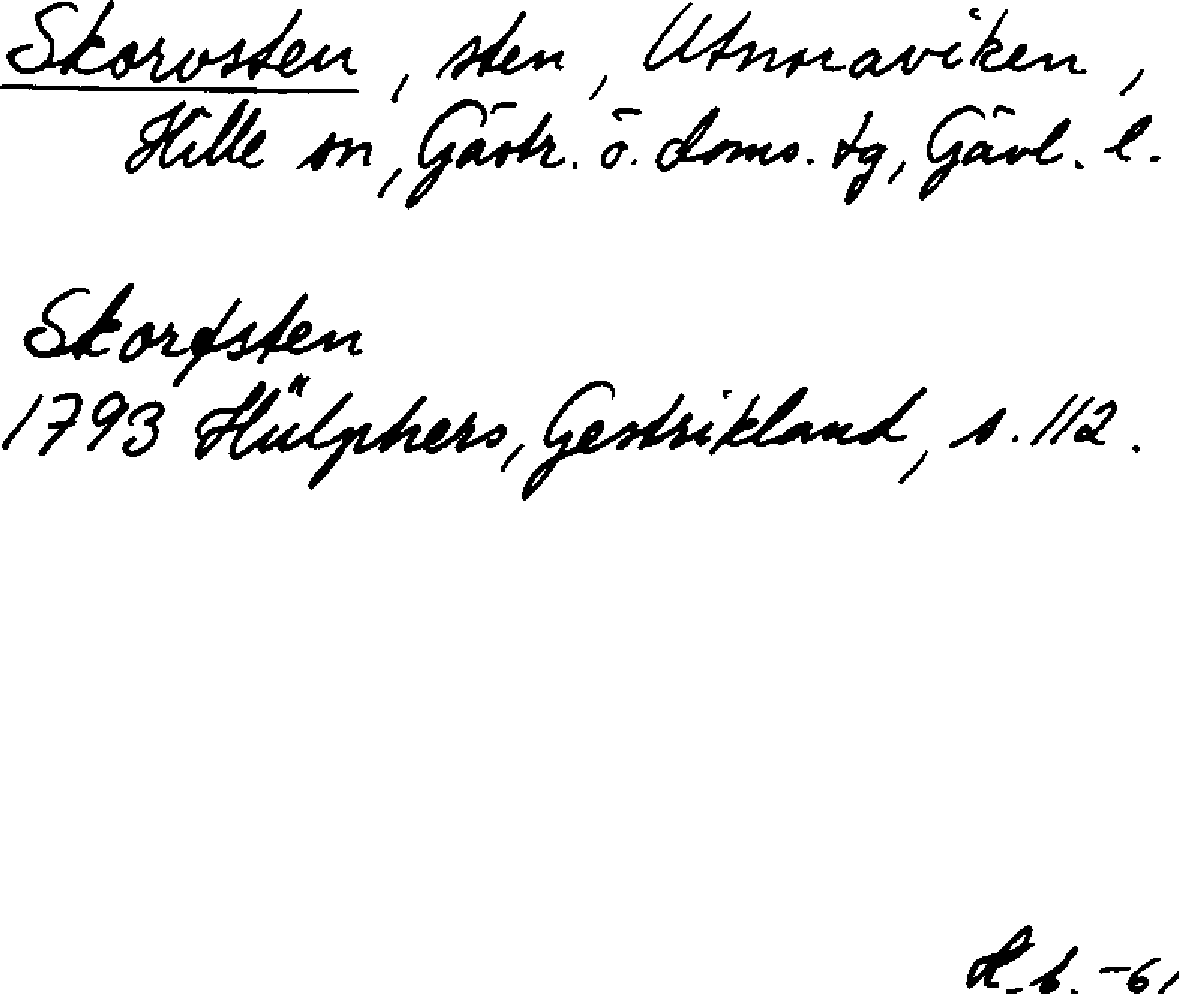 Skorvsten, sten, Utnoraviken,
Hille sn, Gästr. ö. doms. tg, Gävl. l.
Skorfsten
1793 Hülphers, Gestrikland, s. 112.
H. b. -61